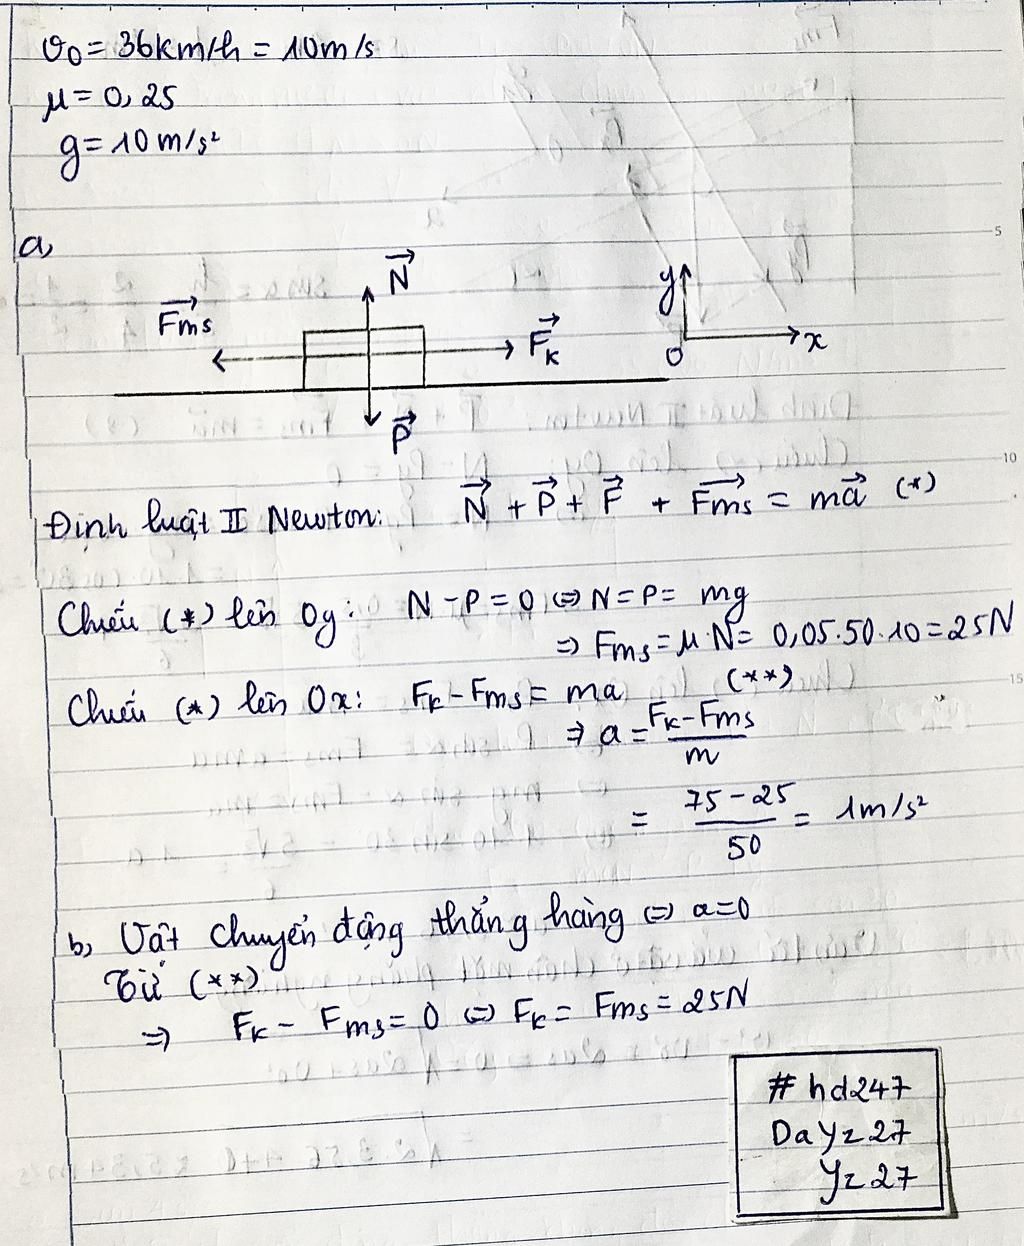 v₀ = 36km/h = 10m/s
μ = 0,25
g = 10m/s²
a,
N
Fms
Fk
P
y
O
x
5
10
Định luật II Newton: N + P + F + Fms = ma (*)
Chiếu (*) lên Oy: N - P = 0 ⇔ N = P = mg
⇒ Fms = μ·N = 0,05.50.10 = 25N
Chiếu (*) lên Ox: Fk - Fms = ma (**)
15
⇒ a = (Fk - Fms)/m
= (75 - 25)/50 = 1m/s²
b, Vật chuyển động thẳng hàng ⇔ a=0
Từ (**)
⇒ Fk - Fms = 0 ⇔ Fk = Fms = 25N
# hd247
DaYz27
Yz27